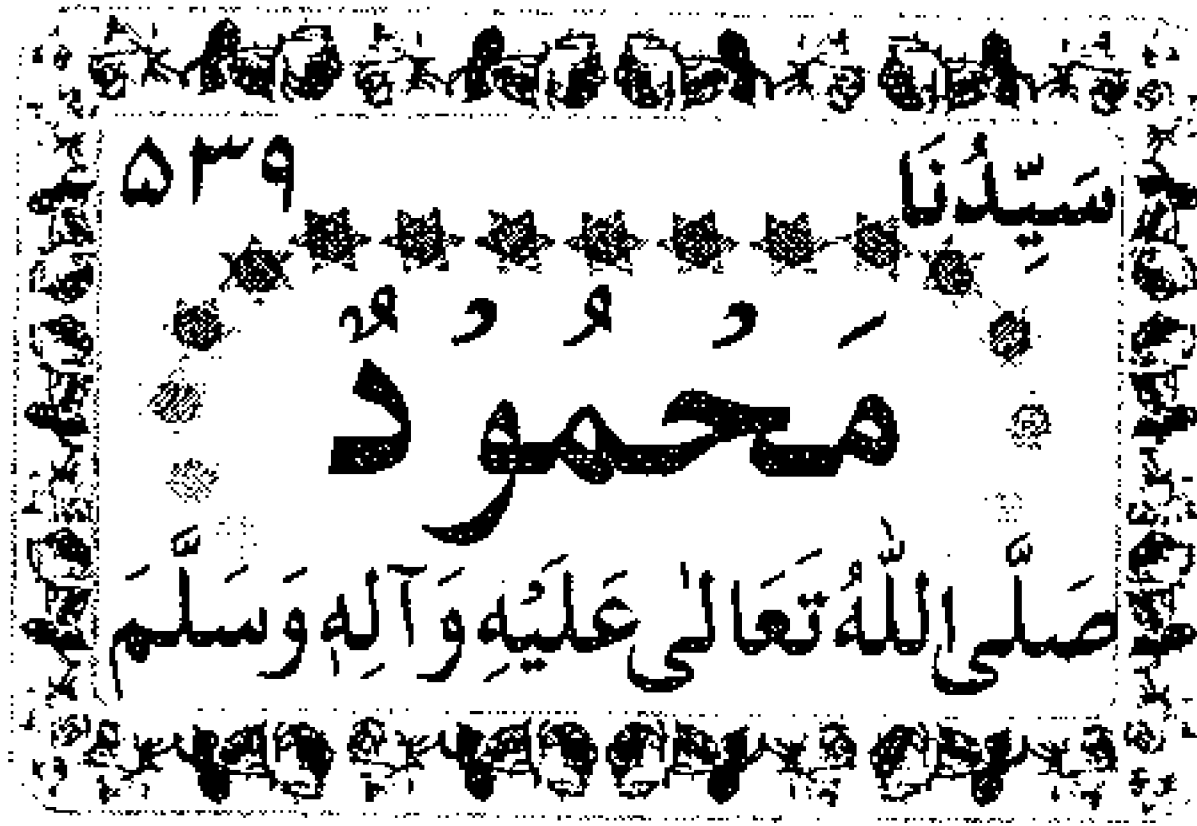 سَيِّدُنَا ۵۳۹
مَحْمُودٌ
صَلَّى اللّٰهُ تَعَالٰى عَلَيْهِ وَآلِهٖ وَسَلَّمَ